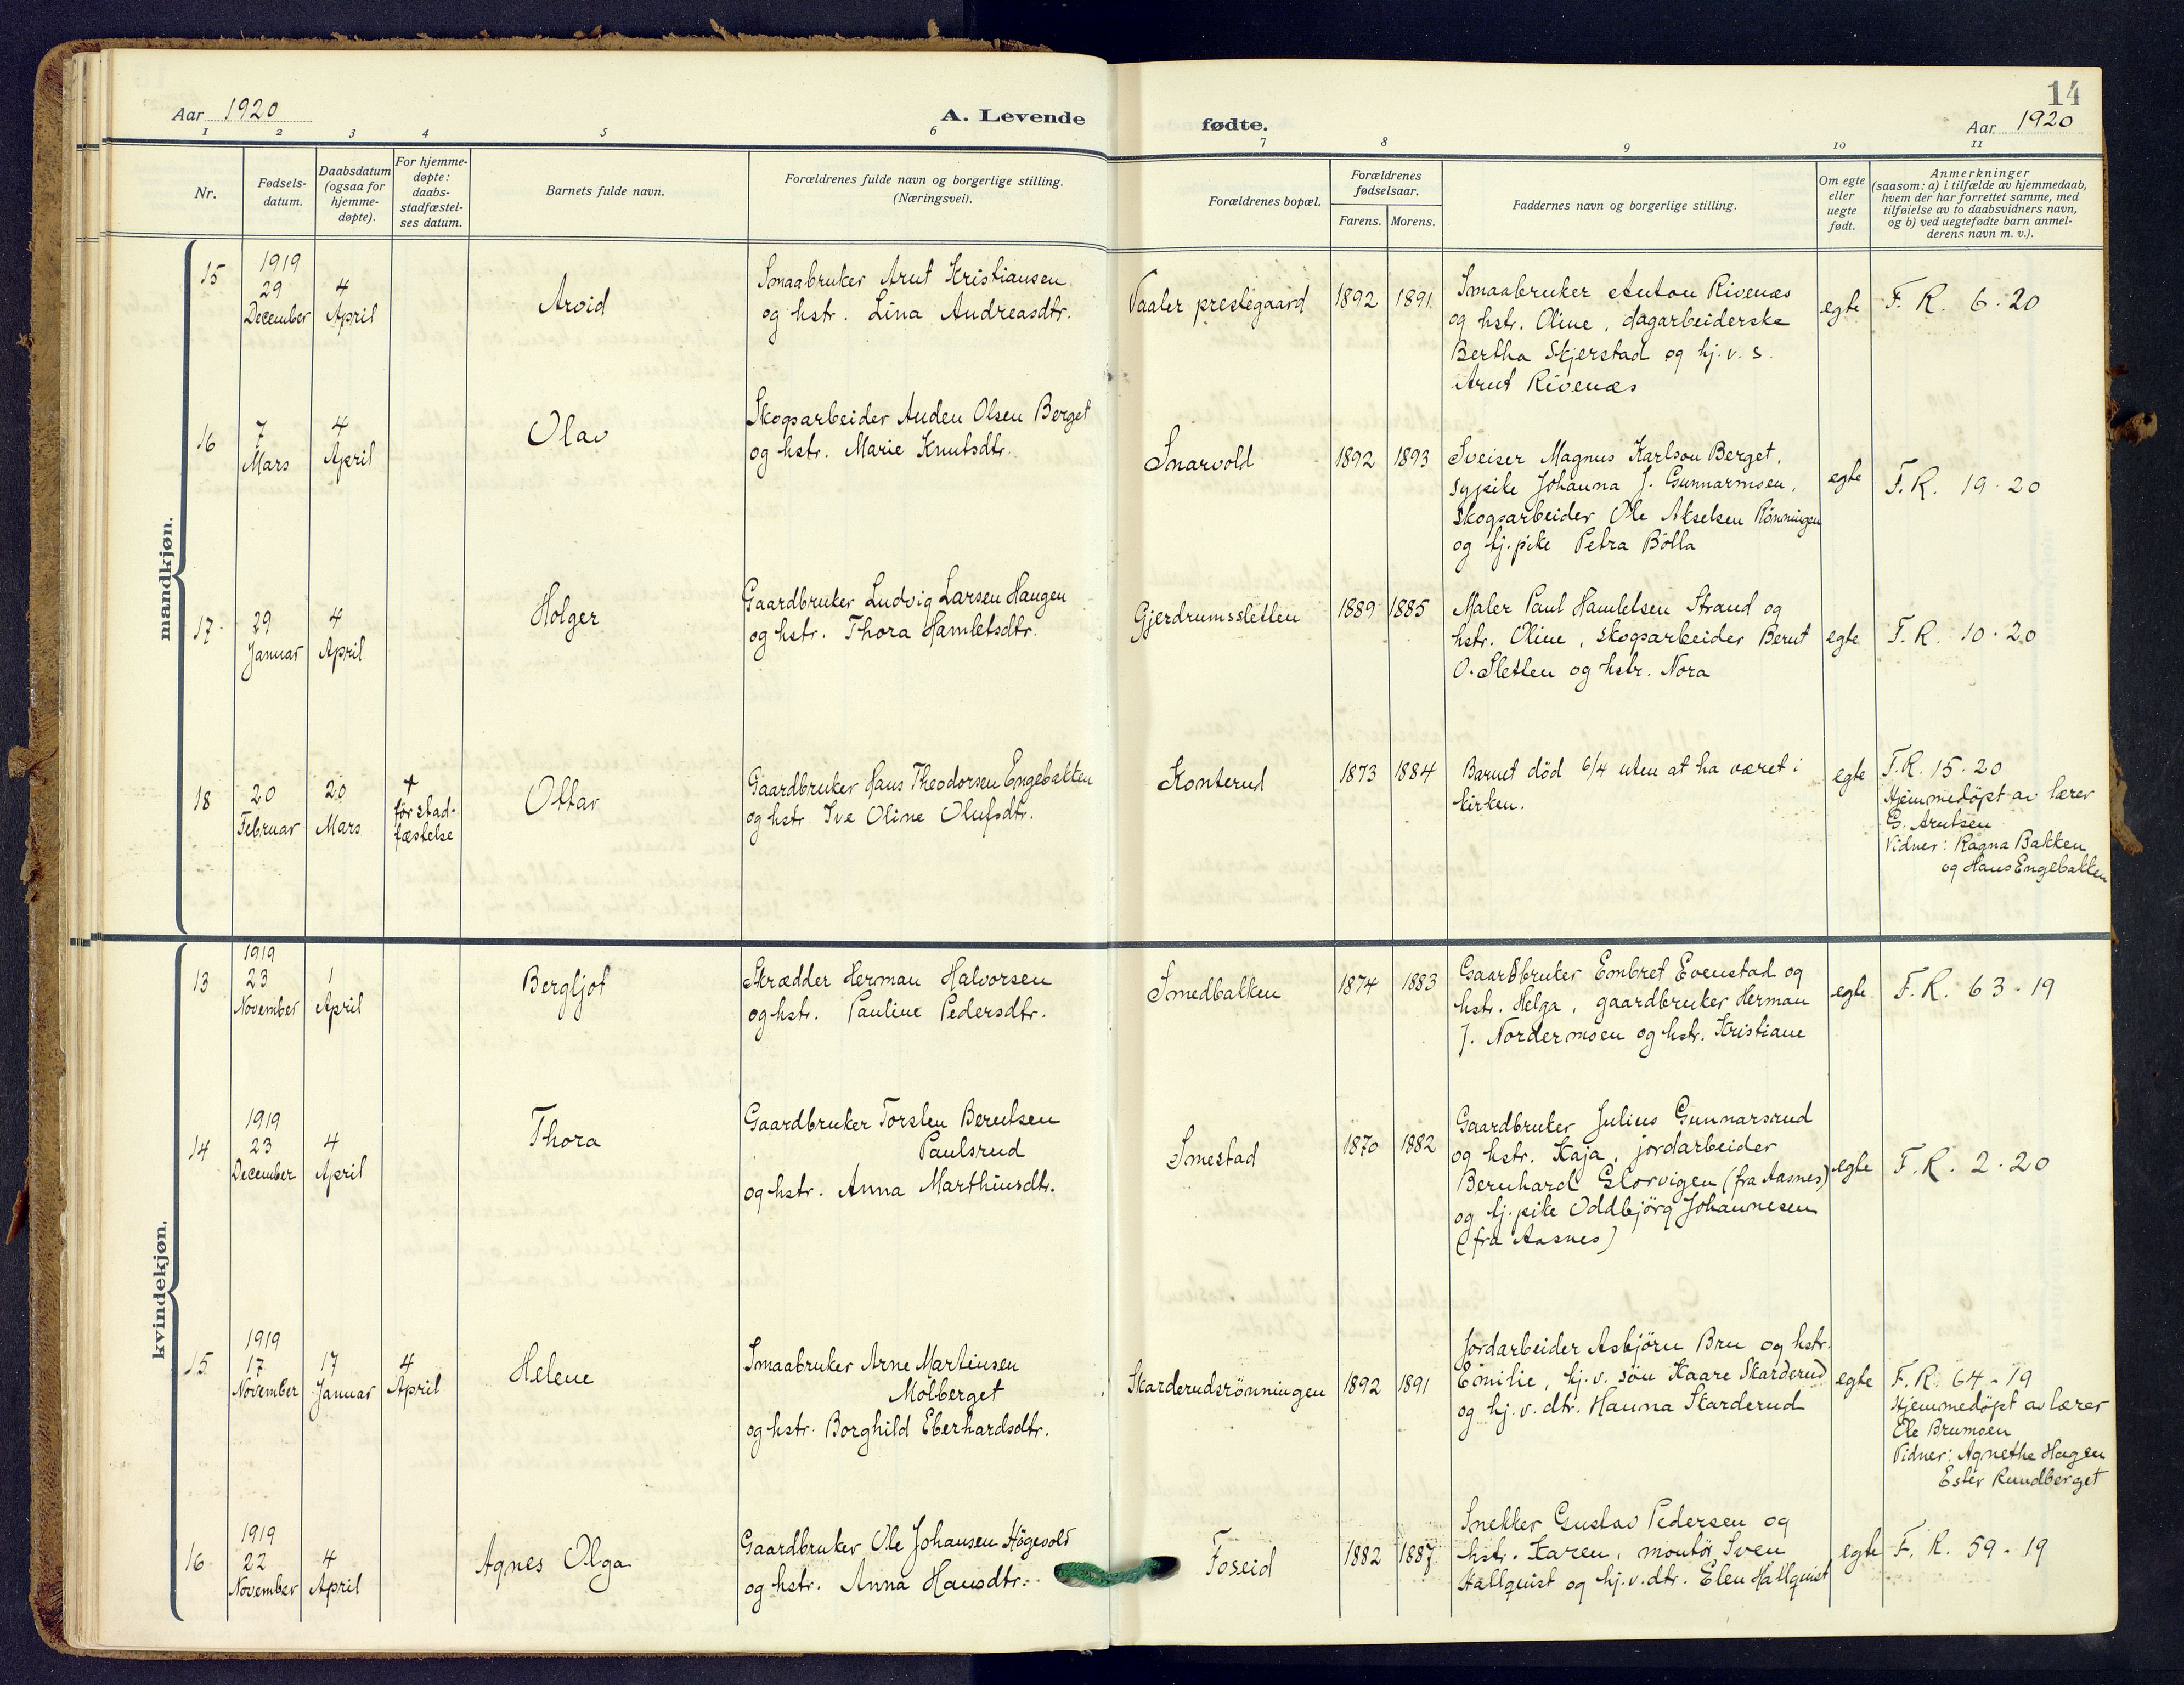 14
Aar 1920
A. Levende
fødte.
Aar 1920
1 2 3 4 5 6 7 8 9 10 11
Nr.
Fødsels-
datum.
Daabsdatum
(ogsaa for
hjemme-
døpte).
For hjemme-
døpte:
daabs-
stadfæstel-
ses datum.
Barnets fulde navn.
Forældrenes fulde navn og borgerlige stilling.
(Næringsvei).
Forældrenes bopæl.
Forældrenes
fødselsaar.
Farens. Morens.
Faddernes navn og borgerlige stilling.
Om egte
eller
uegte
født.
Anmerkninger
(saasom: a) i tilfælde av hjemmedaab,
hvem der har forrettet samme, med
tilføielse av to daabsvidners navn,
og b) ved uegtefødte barn anmel-
derens navn m. v.).
mandkjøn.
15
1919
29
December
4
April
Arvid
Smaabruker Arnt Kristiansen
og hstr. Lina Andreasdtr.
Vaaler prestegaard
1892 1891
Smaabruker Anton Rivenæs
og hstr. Oline, dagarbeiderske
Bertha Skjerstad og hj. v. s.
Arnt Rivenæs
egte
F. R. 6 - 20
16
7
Mars
4
April
Olav
Skogsarbeider Auden Olsen Berget
og hstr. Marie Knutsdtr.
Snarvold
1892 1893
Sveiser Magnus Karlson Berget,
sypike Johanna J. Gunnarmoen,
skogsarbeider Ole Akselsen Rönningen
og tj. pike Petra Bölla
egte
F. R. 19 - 20
17
29
Januar
4
April
Holger
Gaardbruker Ludvig Larsen Haugen
og hstr. Thora Hamletsdtr.
Gjerdrumssletten
1889 1885
Maler Paul Hamletsen Strand og
hstr. Oline, skogsarbeider Bernt
O. Sletten og hstr. Nora
egte
F. R. 10 - 20
18
20
Februar
20
Mars
+
før stad-
fæstelse
Ottar
Gaardbruker Hans Theodorsen Engebakken
og hstr. Ive Oline Olufsdtr.
Konterud
1873 1884
Barnet död 6/4 uten at ha været i
kirken.
egte
F. R. 15 - 20
Hjemmedöpt av lærer
G. Arntsen
Vidner: Ragna Bakken
og Hans Engebakken
kvindekjøn.
13
1919
23
November
1
April
Bergljot
Skrædder Herman Halvorsen
og hstr. Pauline Pedersdtr.
Smedbakken
1874 1883
Gaardbruker Embret Evenstad og
hstr. Helga, gaardbruker Herman
J. Nordermoen og hstr. Kristiane
egte
F. R. 63 - 19
14
1919
23
December
4
April
Thora
Gaardbruker Torsten Berntsen
Paulsrud
og hstr. Anna Marthinsdtr.
Smestad
1870 1882
Gaardbruker Julius Gunnarsrud
og hstr. Kaja, jordarbeider
Bernhard Glorvigen (fra Aasnes)
og tj. pike Oddbjörg Johannesen
(fra Aasnes)
egte
F. R. 2 - 20
15
1919
17
November
17
Januar
4
April
Helene
Smaabruker Arne Martinsen
Molberget
og hstr. Borghild Eberhardsdtr.
Skarderudsrönningen
1892 1891
Jordarbeider Asbjörn Bru og hstr.
Emilie, hj. v. sön Kaare Skarderud
og hj. v. dtr. Hanna Skarderud
egte
F. R. 64 - 19
Hjemmedöpt av lærer
Ole Brumoen
Vidner: Agnethe Hagen
Ester Rundberget
16
1919
22
November
4
April
Agnes Olga
Gaardbruker Ole Johansen Högevold
og hstr. Anna Hansdtr.
Foseid
1882 1887
Snekker Gustav Pedersen og
hstr. Karen, montör Sven
Hallquist og hj. v. dtr. Elen Hallquist
egte
F. R. 59 - 19